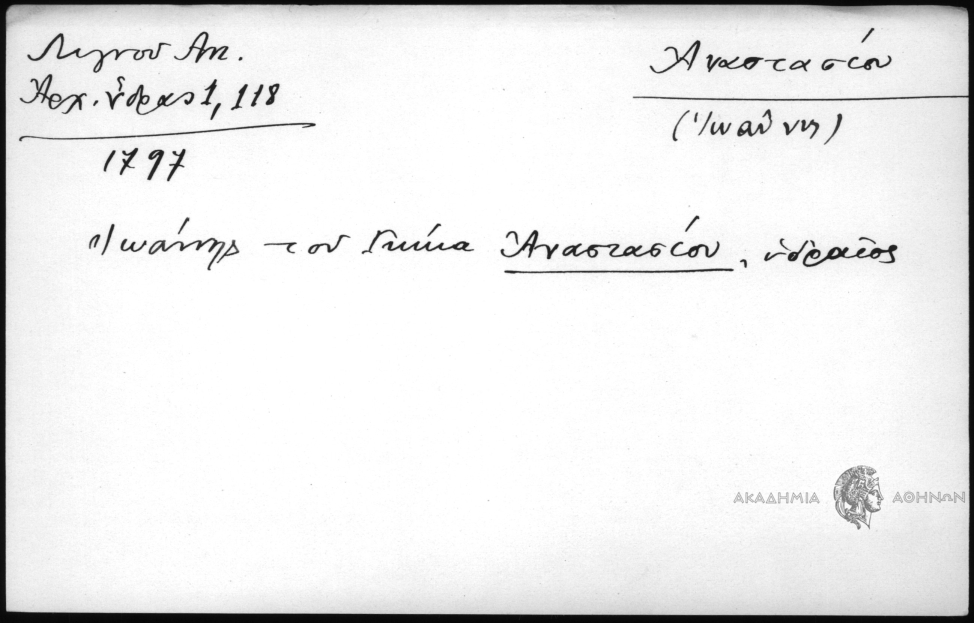 Λιγνού Αντ.
Ἀρχ. ὕδρας 1, 118
1797
Ἀναστασίου
(Ἰωάννης)
Ἰωάννης του Γκίκα Ἀναστασίου, ὑδραῖος
ΑΚΑΔΗΜΙΑ ΑΘΗΝΩΝ